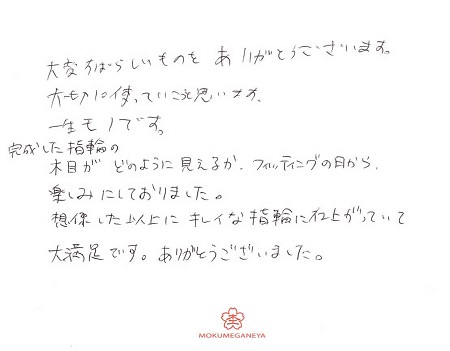 大変すばらしいものを ありがとうございます。
大切に使っていこうと思います。
一生モノです。
完成した指輪の
木目が どのように見えるか、フィッティングの日から、
楽しみにしておりました。
想像した以上に キレイな指輪に仕上がっていて
大満足です。ありがとうございました。
MOKUMEGANEYA